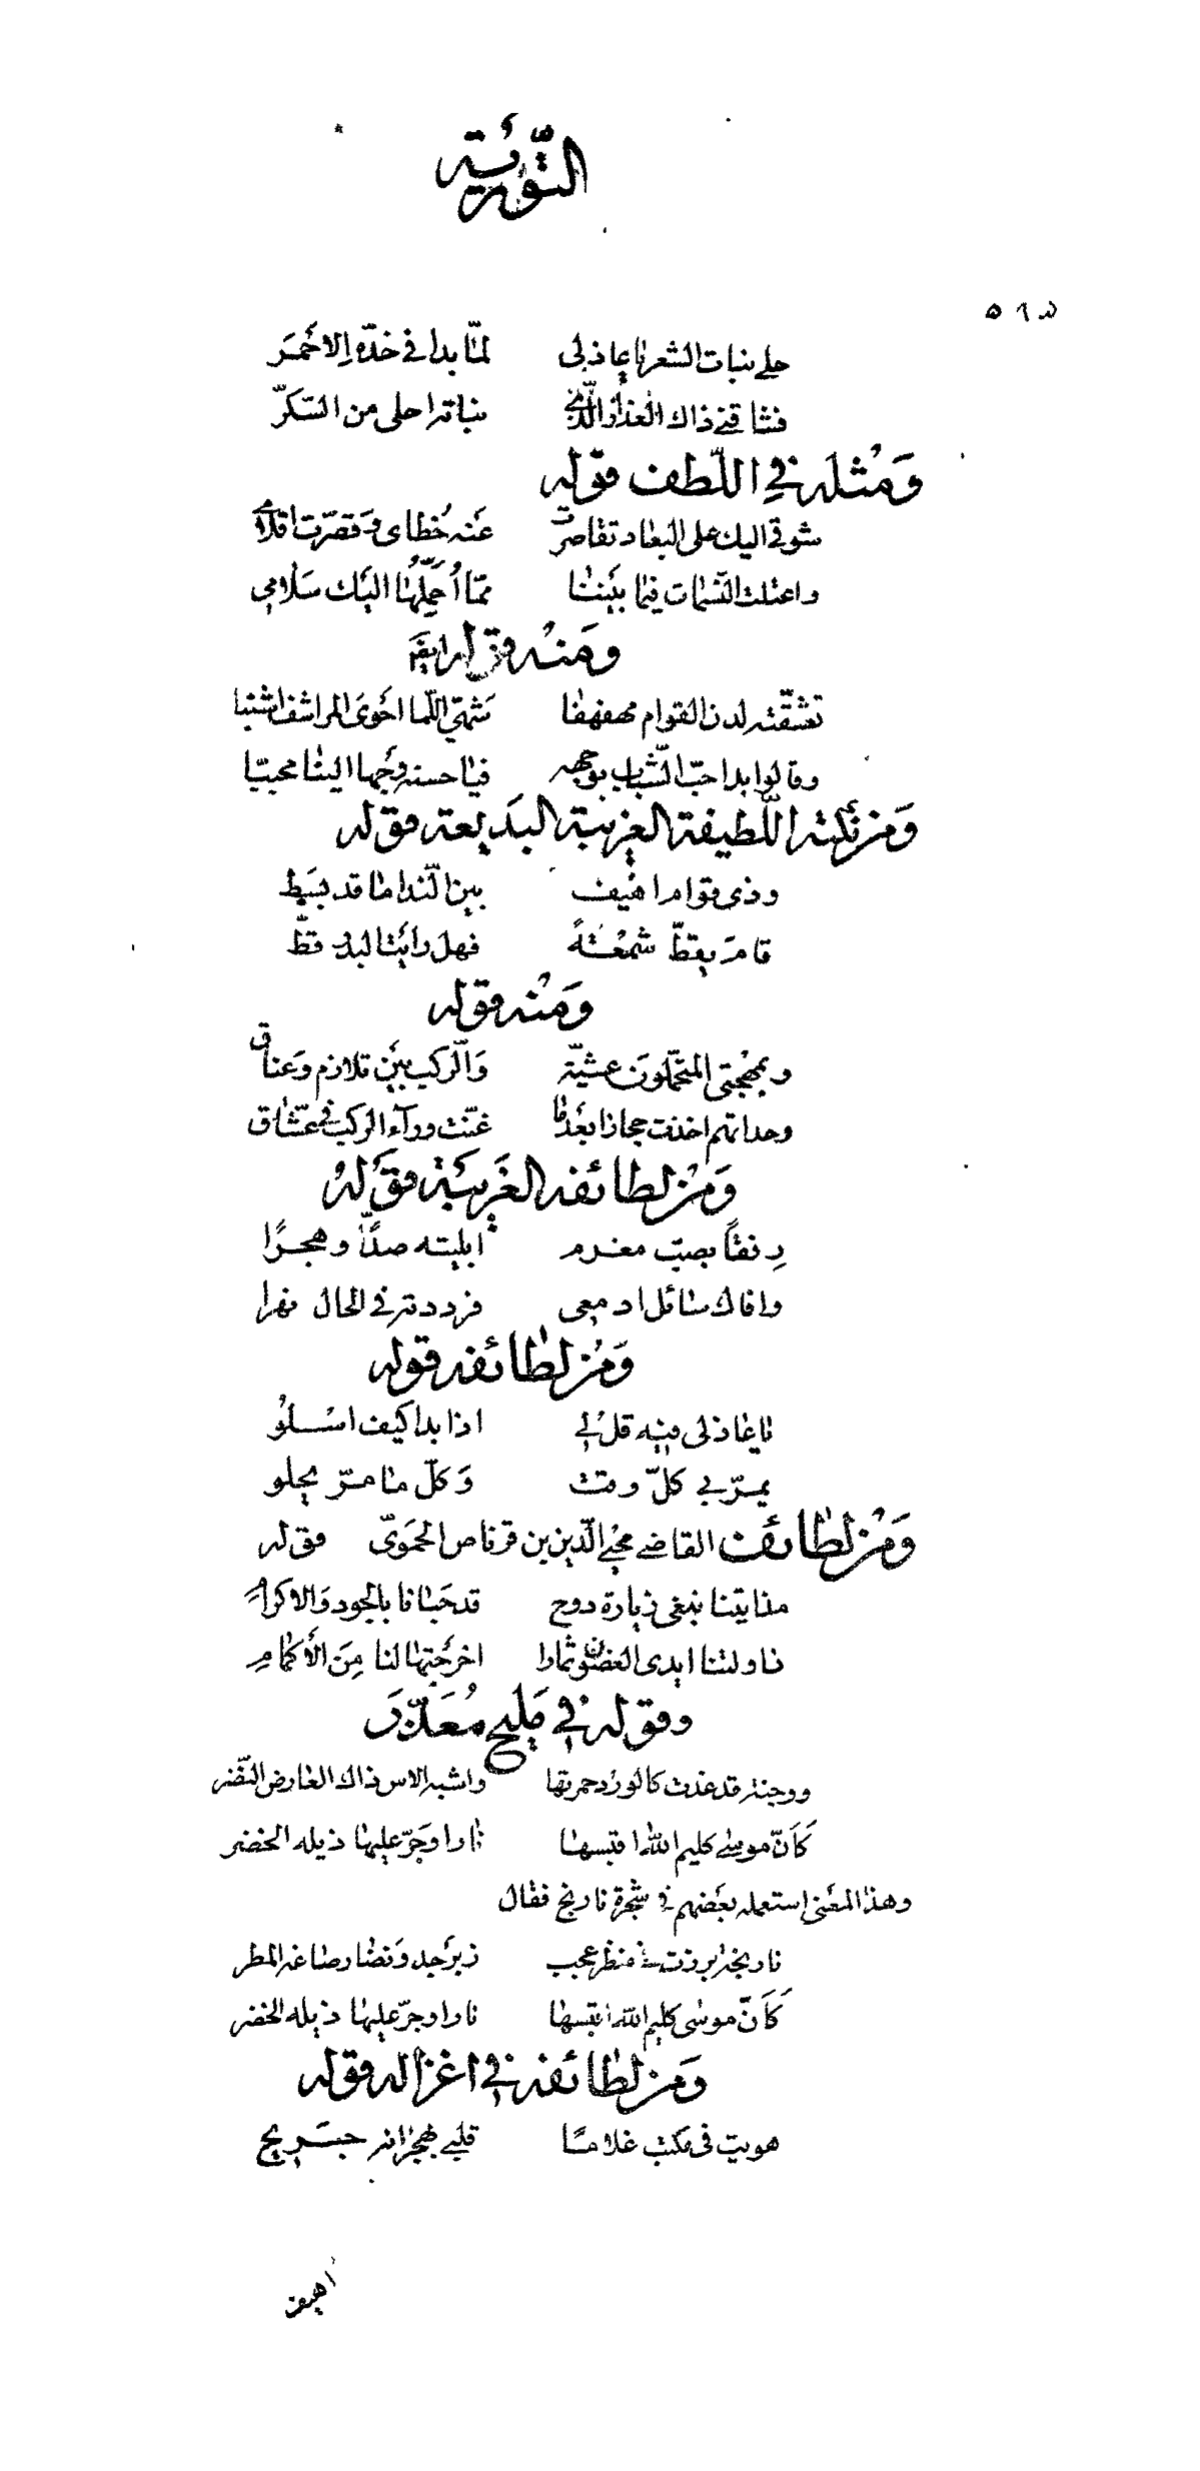 التَّوْرِيَة
٥٦٥
حلى نبات الشعر يا عاذلى لمّا بدا فى خدّه الاحْمَر
فشاقنى ذاك العذار الّذى نباته احلى من السّكّر
وَمثله فِى اللّطف قوله
شوقى اليك على البعاد تقاصرت عَنه خُطاى وَقصّرت اقلامى
واعتلت النّسمات فيما بيننا ممّا اُحمّلها اليك سَلامى
ومَنه قوله ايضا
تعشّقته لدن القوام مهفهفا شهىّ اللّما احْوى المراشف اشنبا
وقالوا بدا حبّ الشّباب بوجهه فيا حسنه وجها الينا محبّبا
وَمن نكته اللّطيفة الغريبة البَديعة قوله
وذى قوام اهْيف بين النّداما قد نشَط
قامَ يقطّ شمْعَةً فهل رايْت البدر قطّ
وَمنْه قوله
وبمهْجتى المتحمّلون عشيّة وَالرّكب بيْن تلازم وَعناق
وحداتهم اخذت حجازا بعْدما غنّت ورآء الركب فى عشّاق
وَمنْ لطائفه الغَريبَة قوْلهُ
رِفقًا بصبّ مغرم ابليته صدًّا وهجْرًا
وافاك سائل ادمعى فرددته فى الحال نهرا
وَمنْ لطائفه قوله
يا عاذلى فيه قل لى اذا بدا كيف اسْلوُ
يمرّ بى كلّ وقت وَكلّ ما مرّ يحلو
وَمنْ لطائف القاضى محْيى الدّين بن قرناص الحمَوىّ قوله
مذ اتينا نبغى زيارة دوح قد حَبانا بالجود وَالاكرام
ناولتنا ايدى الغصُون ثمارا اخرجَتها لنا مِنَ الأكمامِ
وقوله فى مَليح مُعَذّرَ
ووجنة قد غدت كالورد حمرتها واشبه الاس ذاك العارض النّضر
كَأنّ موسى كليم اللّه اقتبسها نارا وَجَرّ عليها ذيله الخضر
وهذا المعْنى استعمله بعْضهم فى شجرة نارنج فقال
نارنجة برزت فى منظر عجب زبرْجد وَنضار صاغه المطر
كَأنّ موسى كليم اللّه اقتبسها نارا وجرّ عليها ذيله الخضر
وَمن لطائفه فى اغزاله قوله
هويت فى مكتب غلامًا قلبى بهجرانه جَريح